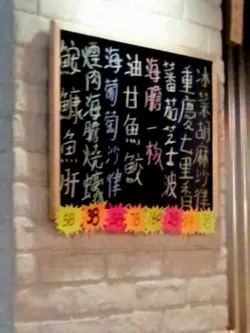 冰菜胡麻沙律
重慶七里香
蕃茄芝士波
海膽一板
油甘魚鮫
海葡萄沙律
煙肉海膽燒蠔
鮟鱇魚肝
58
38
78